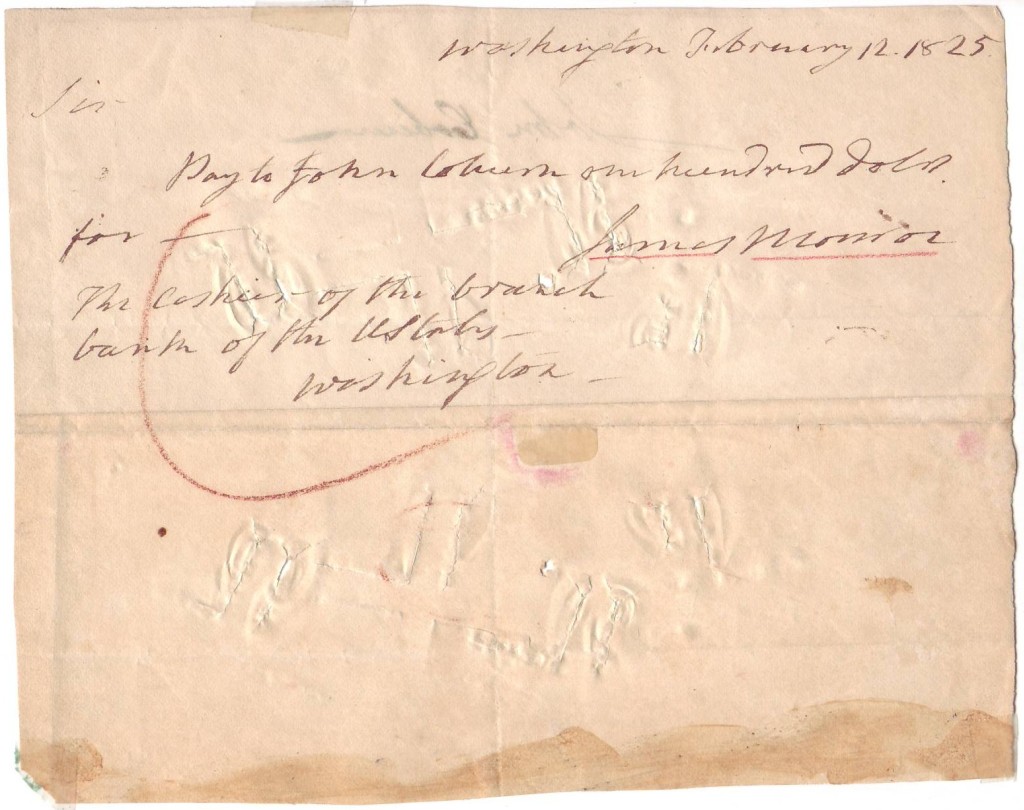 Washington February 12. 1825.
Sir
Pay to John Coburn one hundred dolrs.
for —
James Monroe
The Cashier of the branch
bank of the UStates —
Washington —
John